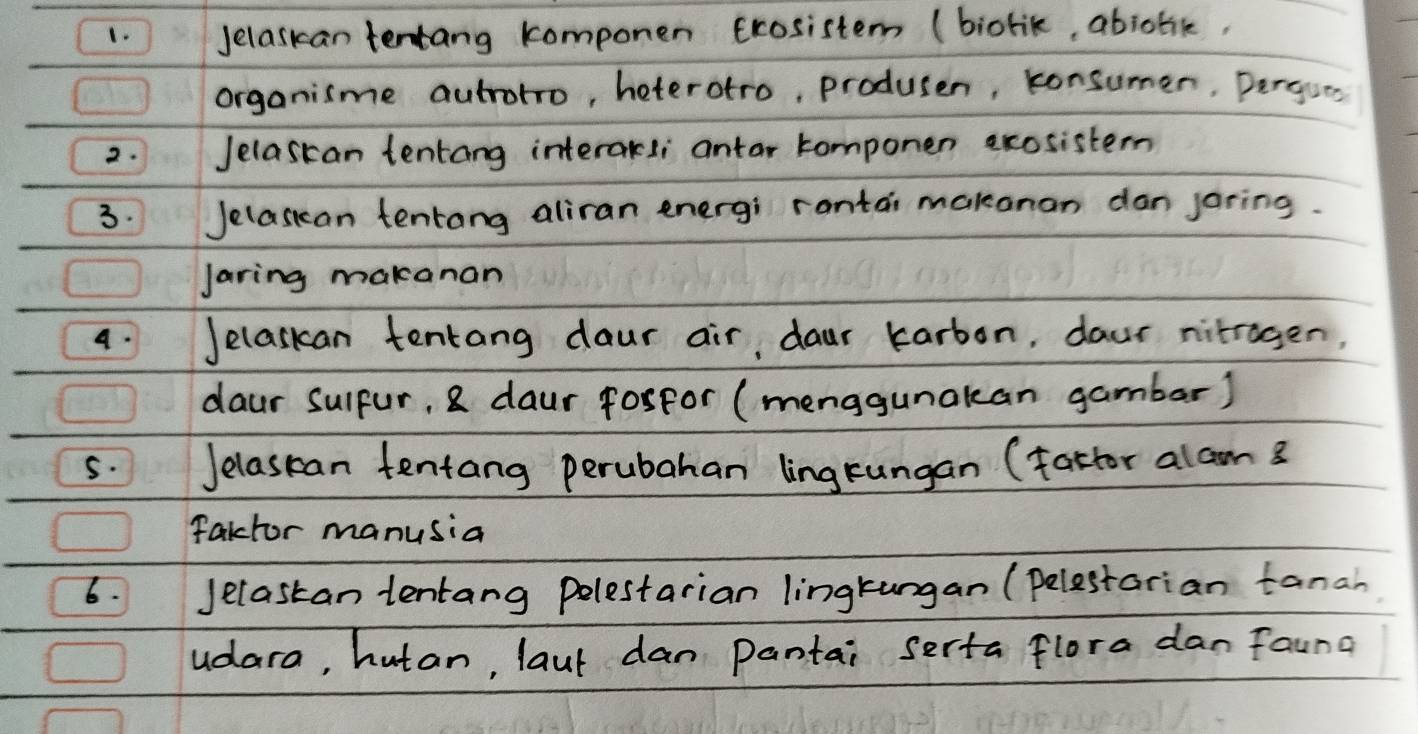 1. Jelaskan tentang komponen Ekosistem (biotik, abiotik,
organisme autrotro, heterotro, produsen, konsumen, Pengurai
2. Jelaskan tentang interaksi antar komponen ekosistem
3. Jelaskan tentang aliran energi rantai makanan dan jaring-
Jaring makanan
4. Jelaskan tentang daur air, daur karbon, daur nitrogen,
daur sulfur, & daur fosfor (menggunakan gambar)
5. Jelaskan tentang perubahan lingkungan (faktor alam &
faktor manusia
6. Jelaskan tentang Pelestarian lingkungan (Pelestarian tanah,
udara, hutan, laut dan Pantai serta flora dan fauna